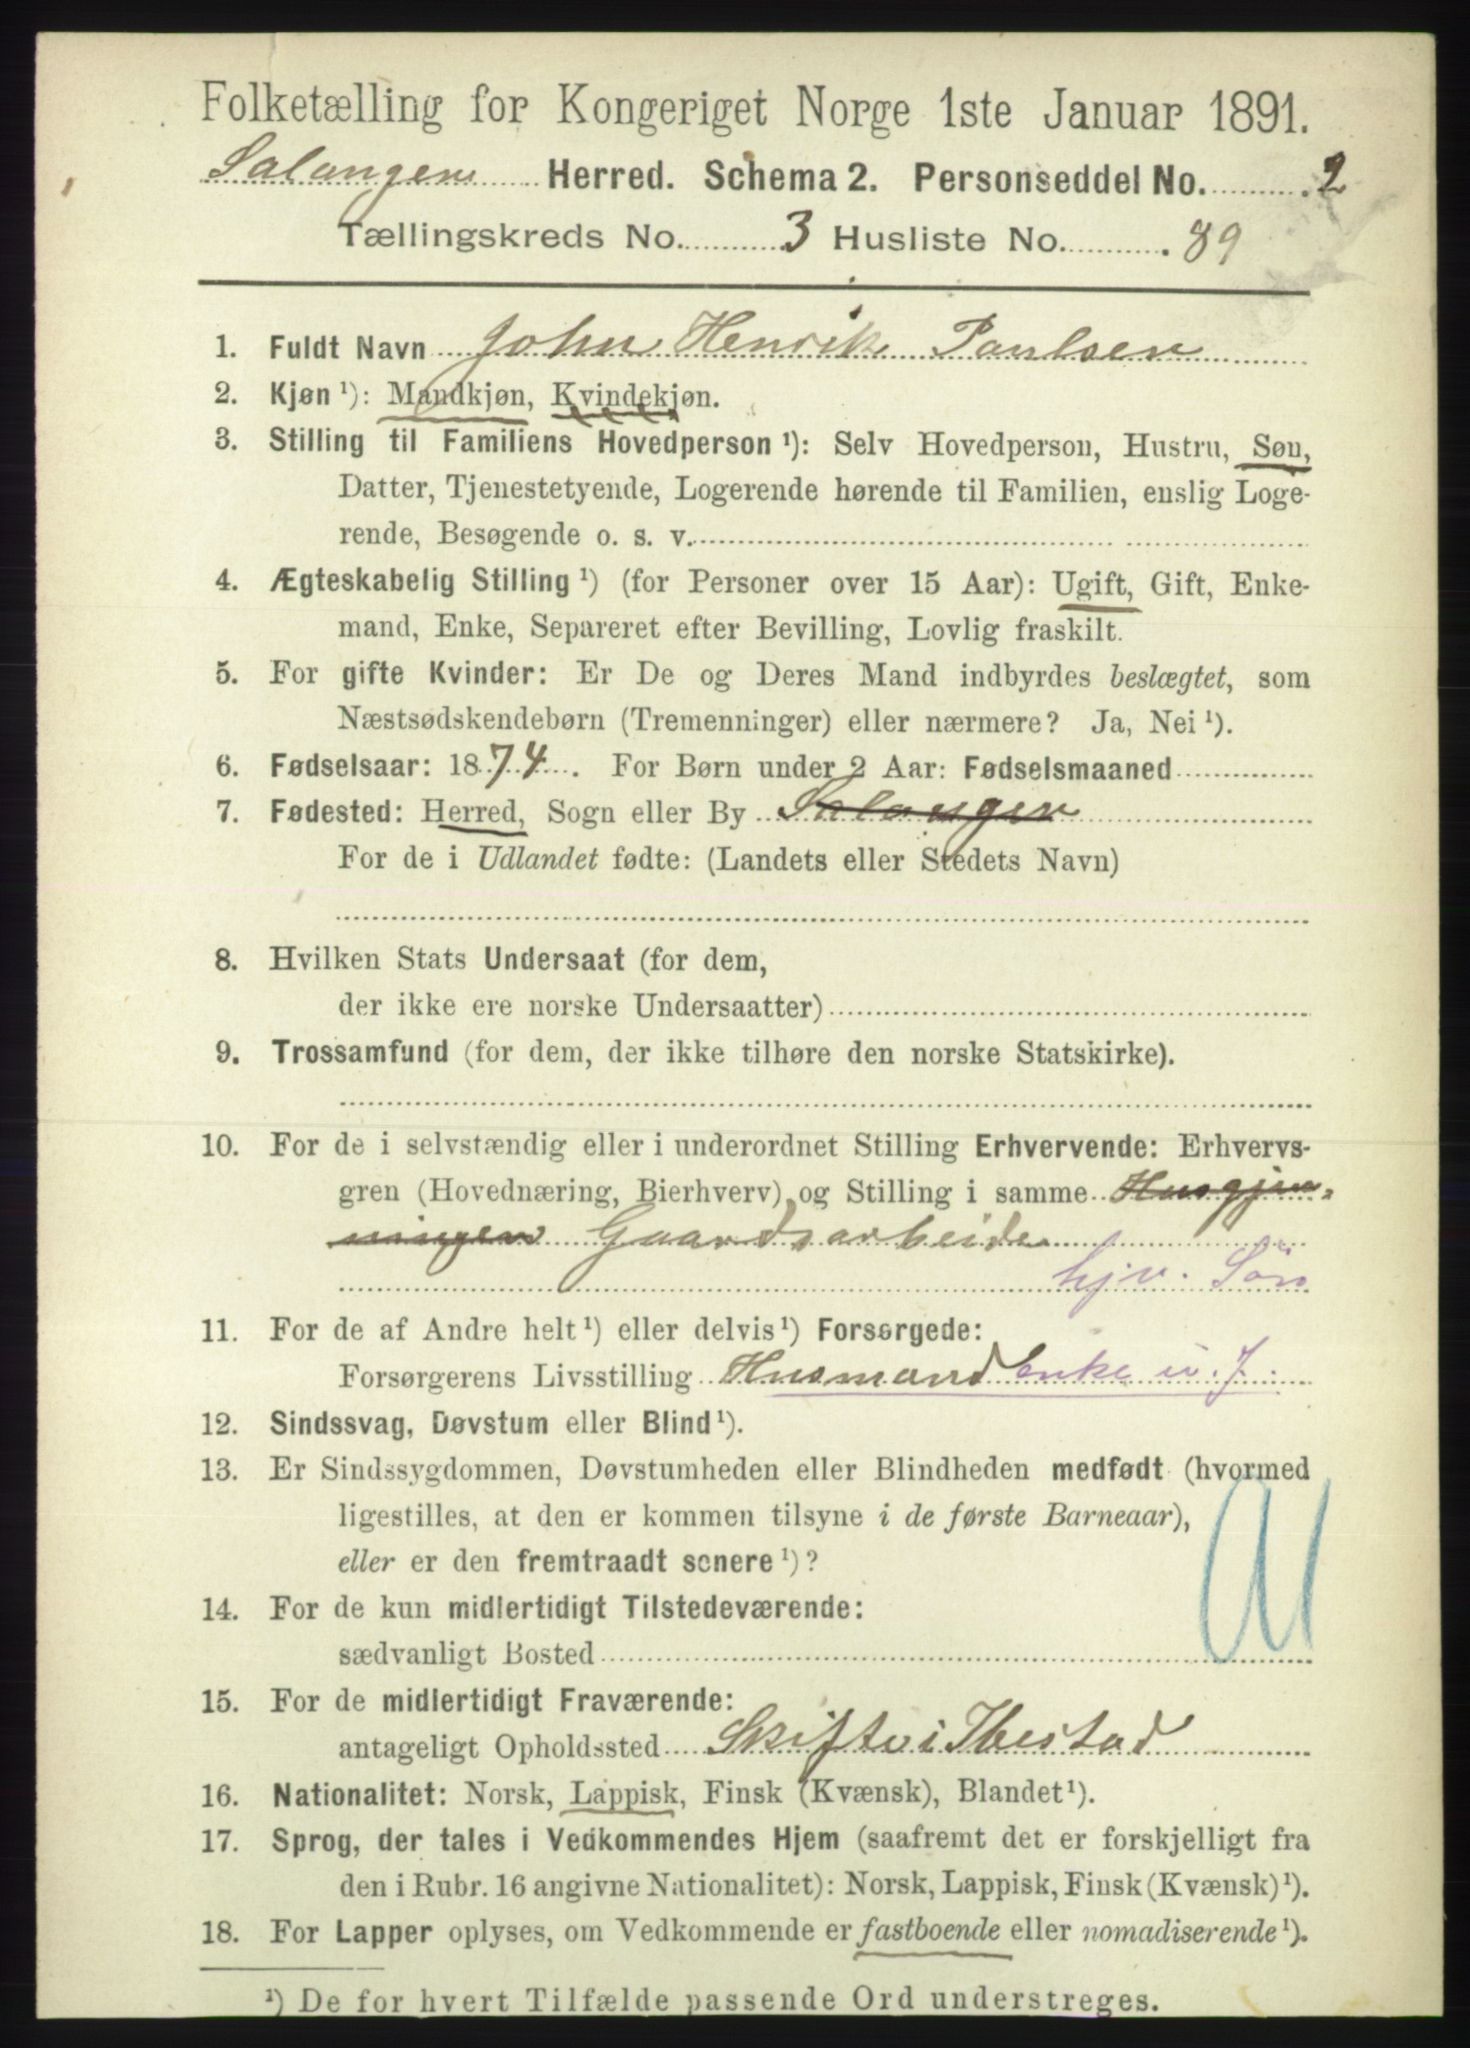 Folketælling for Kongeriget Norge 1ste Januar 1891.
Salangen Herred. Schema 2. Personseddel No. 2
Tællingskreds No. 3 Husliste No. 89
1. Fuldt Navn John Henrik Paulsen
2. Kjøn ¹): Mandkjøn, Kvindekjøn.
3. Stilling til Familiens Hovedperson ¹): Selv Hovedperson, Hustru, Søn,
Datter, Tjenestetyende, Logerende hørende til Familien, enslig Loge-
rende, Besøgende o. s. v.
4. Ægteskabelig Stilling ¹) (for Personer over 15 Aar): Ugift, Gift, Enke-
mand, Enke, Separeret efter Bevilling, Lovlig fraskilt.
5. For gifte Kvinder: Er De og Deres Mand indbyrdes beslægtet, som
Næstsødskendebørn (Tremenninger) eller nærmere? Ja, Nei ¹).
6. Fødselsaar: 1874. For Børn under 2 Aar: Fødselsmaaned
7. Fødested: Herred, Sogn eller By Salangen
For de i Udlandet fødte: (Landets eller Stedets Navn)
8. Hvilken Stats Undersaat (for dem,
der ikke ere norske Undersaatter)
9. Trossamfund (for dem, der ikke tilhøre den norske Statskirke).
10. For de i selvstændig eller i underordnet Stilling Erhvervende: Erhvervs-
gren (Hovednæring, Bierhverv) og Stilling i samme Husgjer-
ningen Gaardsarbeide
hjv. Søn
11. For de af Andre helt ¹) eller delvis ¹) Forsørgede:
Forsørgerens Livsstilling Husmand enke u. J.
12. Sindssvag, Døvstum eller Blind ¹).
13. Er Sindssygdommen, Døvstumheden eller Blindheden medfødt (hvormed
ligestilles, at den er kommen tilsyne i de første Barneaar),
eller er den fremtraadt senere ¹)?
14. For de kun midlertidigt Tilstedeværende:
sædvanligt Bosted
15. For de midlertidigt Fraværende:
antageligt Opholdssted Skifte i Ibestad
16. Nationalitet: Norsk, Lappisk, Finsk (Kvænsk), Blandet ¹).
17. Sprog, der tales i Vedkommendes Hjem (saafremt det er forskjelligt fra
den i Rubr. 16 angivne Nationalitet): Norsk, Lappisk, Finsk (Kvænsk) ¹).
18. For Lapper oplyses, om Vedkommende er fastboende eller nomadiserende ¹).
¹) De for hvert Tilfælde passende Ord understreges.